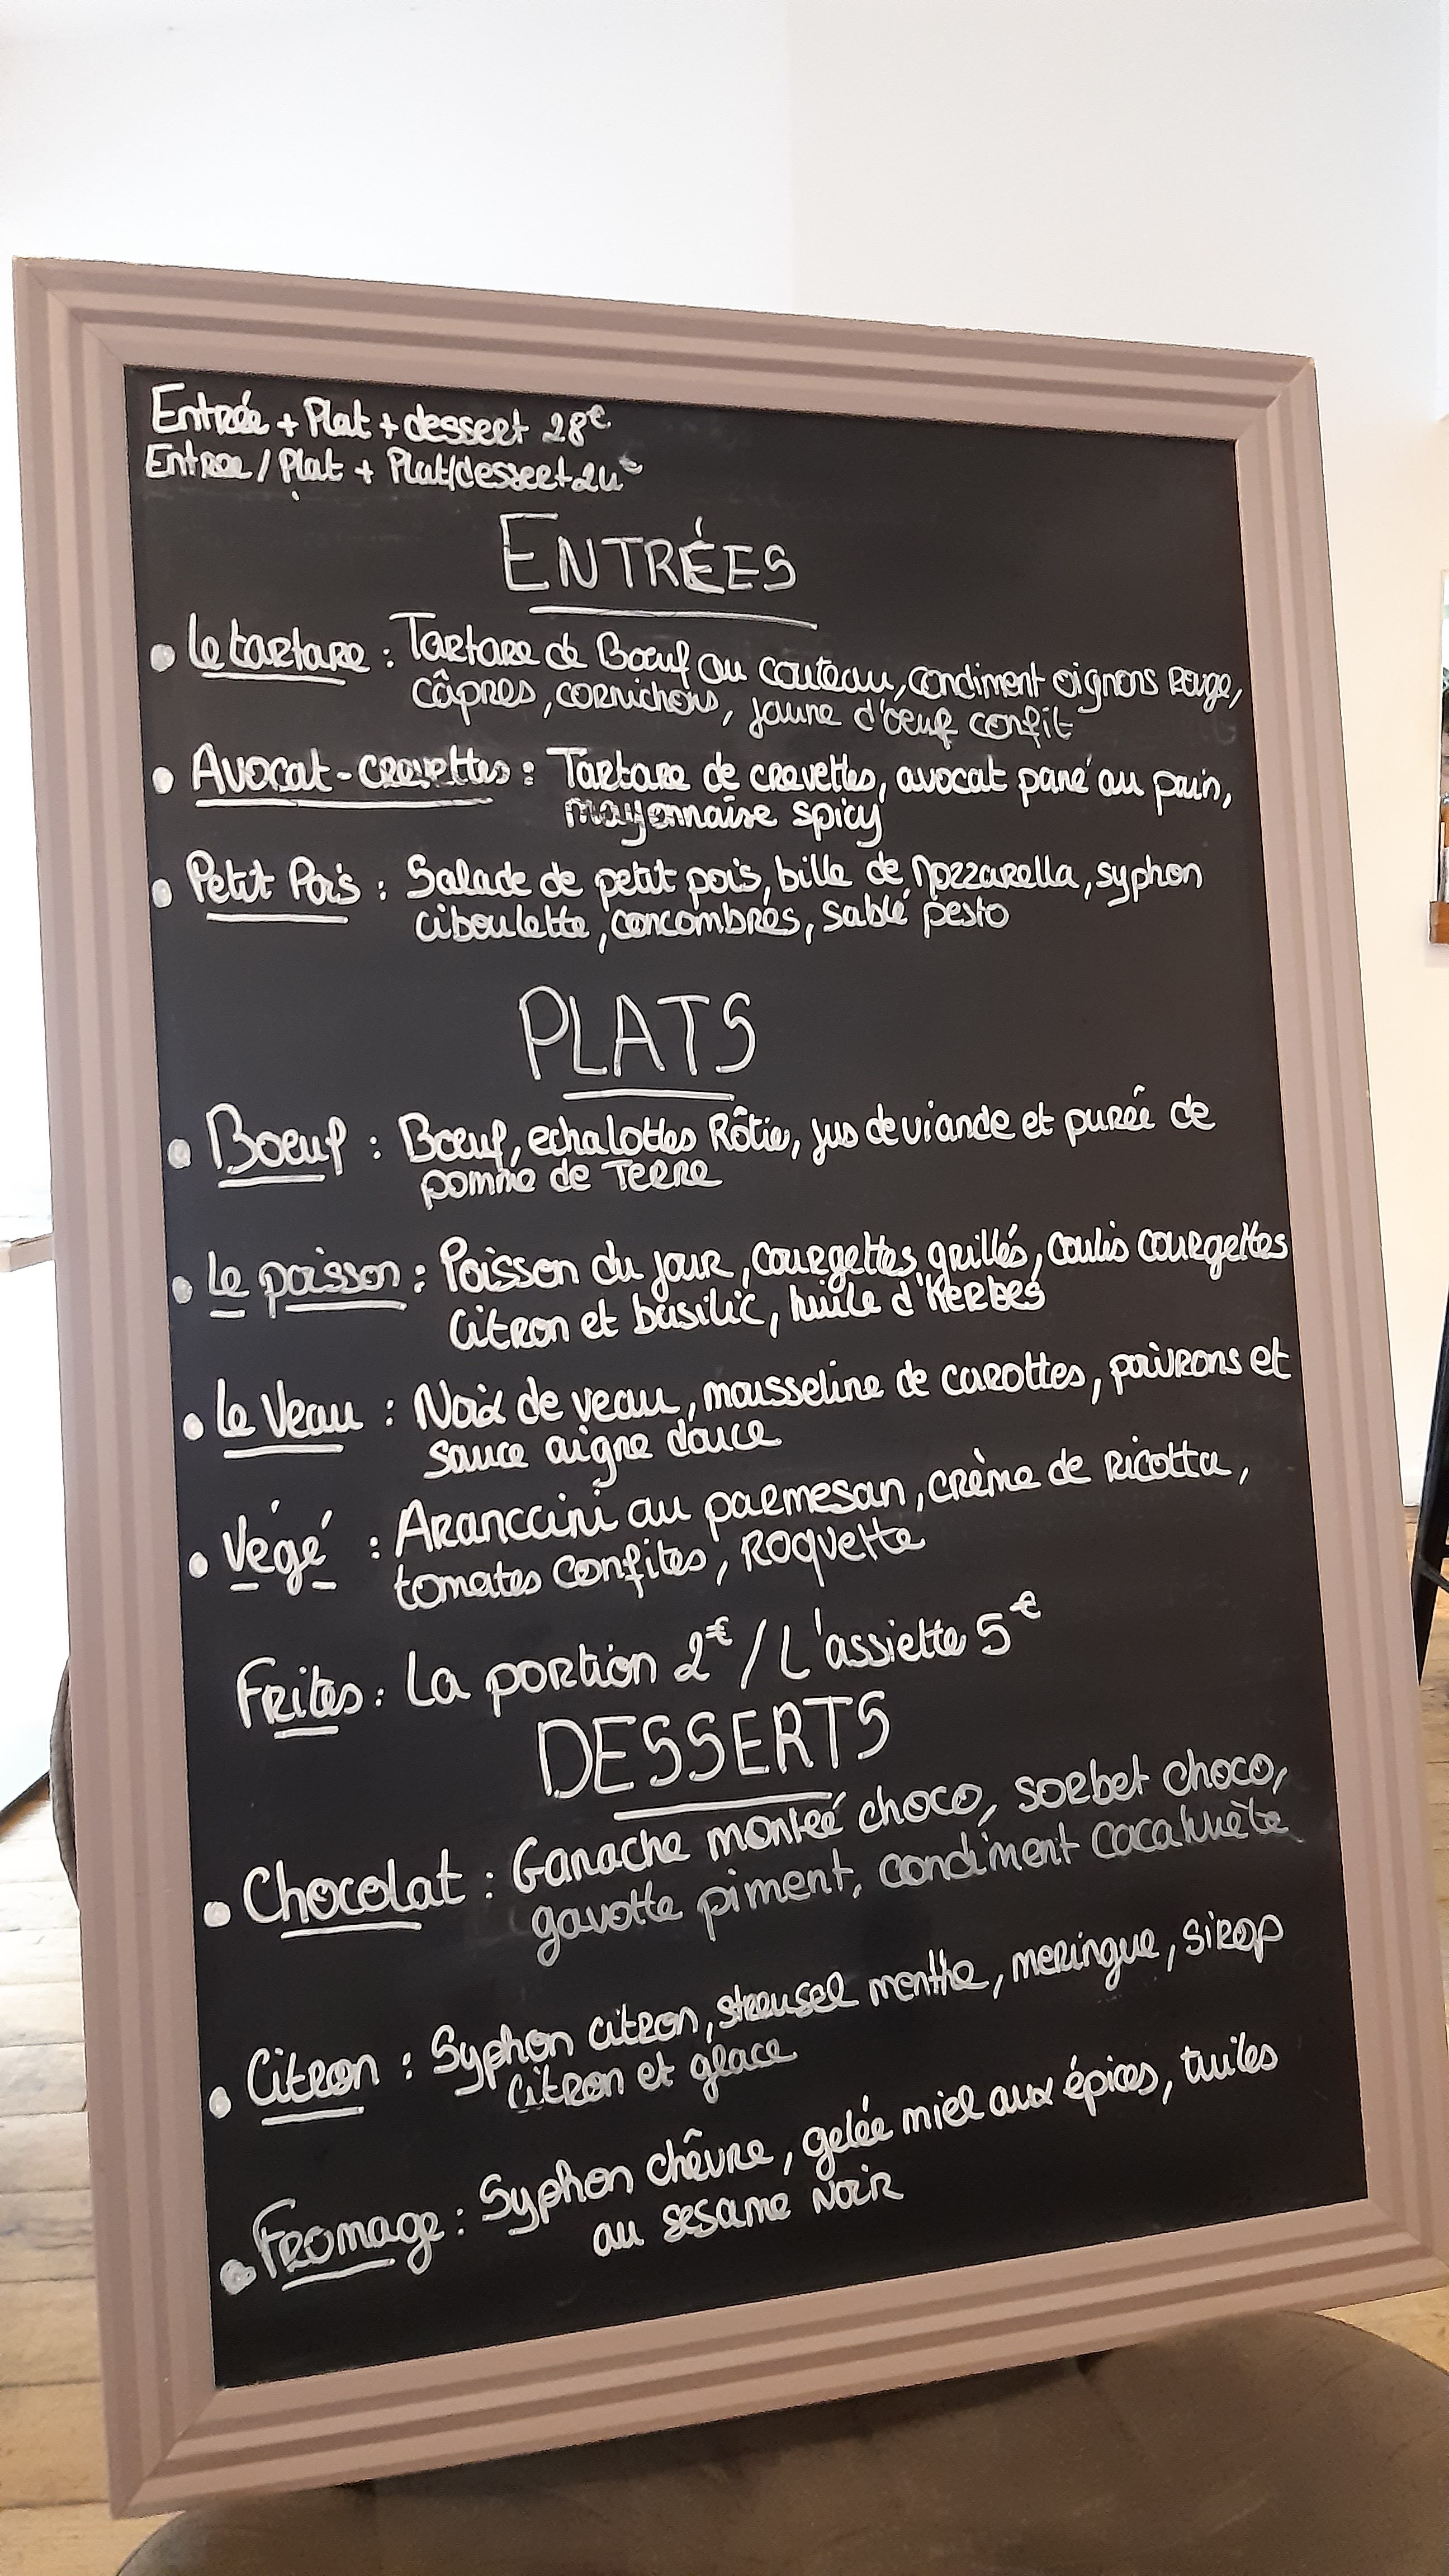 Entrée + Plat + dessert 28€
Entree / Plat + Plat/dessert 24€
ENTRÉES
• Le tartare : Tartare de Bœuf au couteau, condiment oignons rouge,
câpres, cornichons, jaune d'œuf confit
• Avocat-crevettes : Tartare de crevettes, avocat pané au pain,
mayonnaise spicy
• Petit Pois : Salade de petit pois, bille de Mozzarella, syphon
ciboulette, concombres, sablé pesto
PLATS
• Boeuf : Bœuf, echalottes Rôtie, jus de viande et purée de
pomme de Terre
• Le poisson : Poisson du jour, courgettes grillés, coulis courgettes
Citron et basilic, huile d'Herbes
• Le Veau : Noix de veau, mousseline de carottes, poivrons et
sauce aigne douce
• Végé : Aranccini au parmesan, crème de Ricotta,
tomates confites, Roquette
Frites : La portion 2€ / L'assiette 5€
DESSERTS
• Chocolat : Ganache montéé choco, sorbet choco,
gavotte piment, condiment Cacahuète
• Citron : Syphon citron, streusel menthe, meringue, sirop
Citron et glace
• Fromage : Syphon chêvre, gelée miel aux épices, tuiles
au sesame Noir